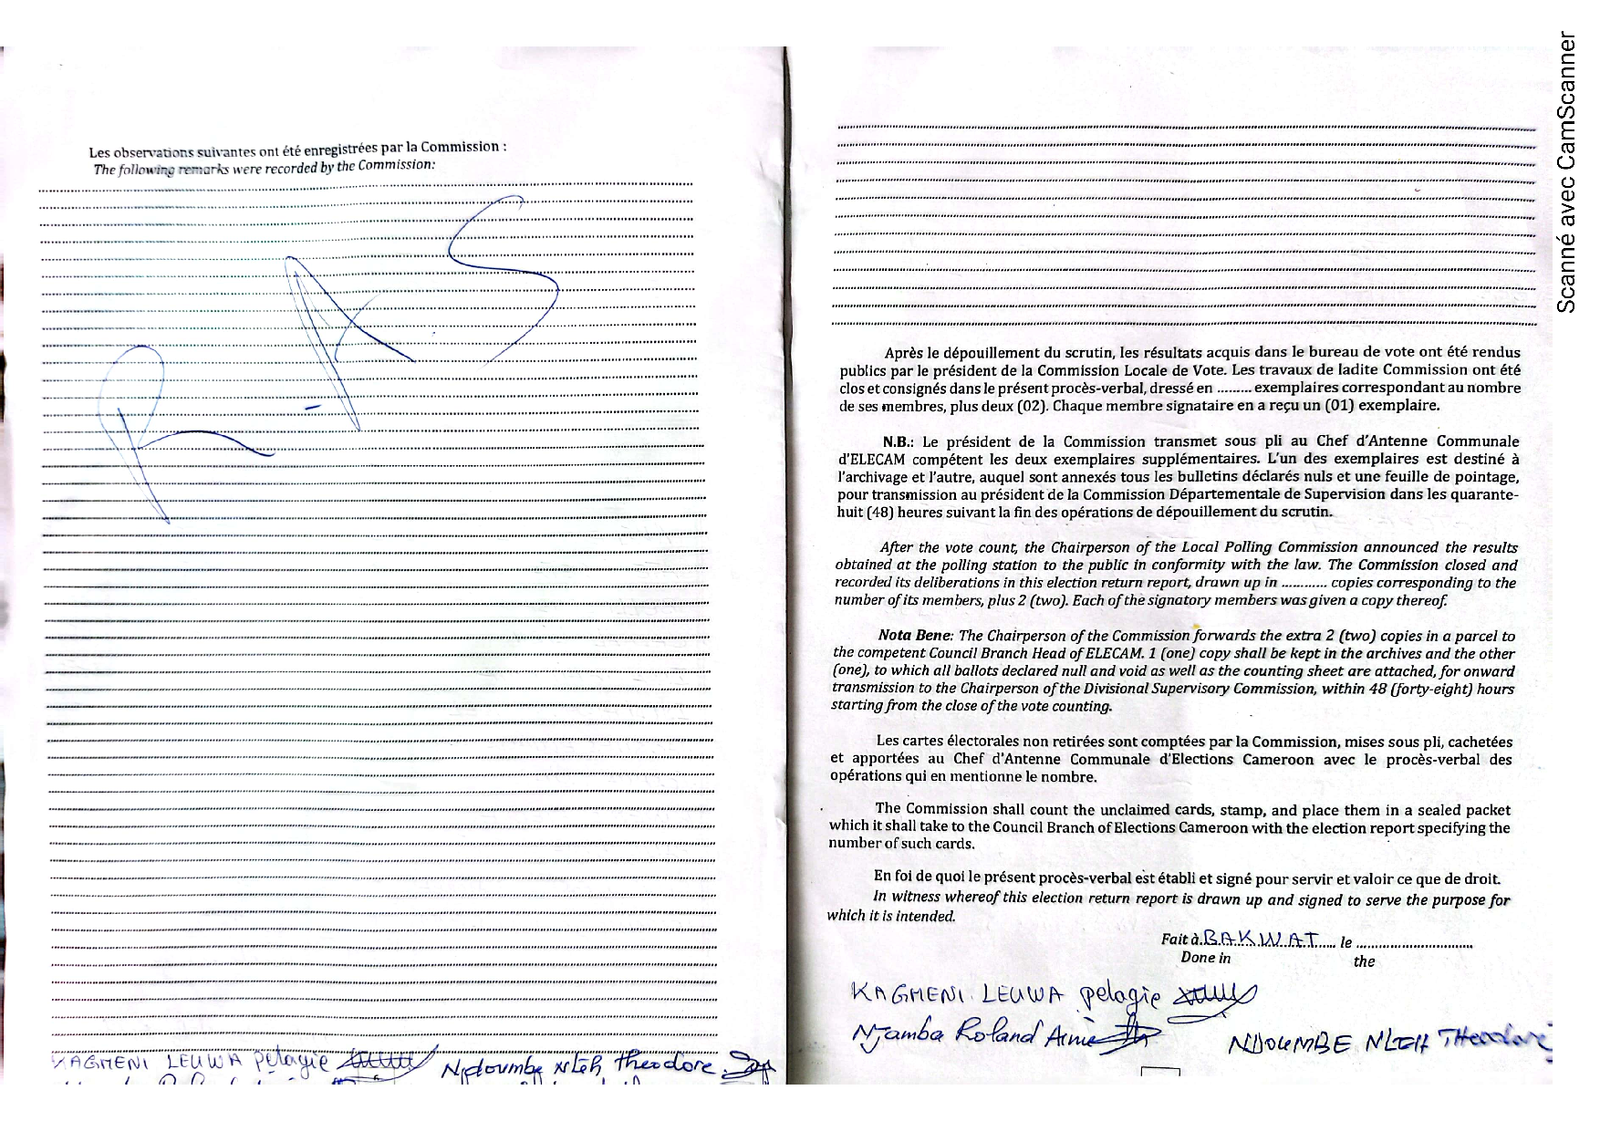 Les observations suivantes ont été enregistrées par la Commission :
The following remarks were recorded by the Commission:
R-A-S
KAGMENI LEUWA pelagie
Ndoumbe Nteh Theodore
Après le dépouillement du scrutin, les résultats acquis dans le bureau de vote ont été rendus
publics par le président de la Commission Locale de Vote. Les travaux de ladite Commission ont été
clos et consignés dans le présent procès-verbal, dressé en ......... exemplaires correspondant au nombre
de ses membres, plus deux (02). Chaque membre signataire en a reçu un (01) exemplaire.
N.B.: Le président de la Commission transmet sous pli au Chef d'Antenne Communale
d'ELECAM compétent les deux exemplaires supplémentaires. L'un des exemplaires est destiné à
l'archivage et l'autre, auquel sont annexés tous les bulletins déclarés nuls et une feuille de pointage,
pour transmission au président de la Commission Départementale de Supervision dans les quarante-
huit (48) heures suivant la fin des opérations de dépouillement du scrutin.
After the vote count, the Chairperson of the Local Polling Commission announced the results
obtained at the polling station to the public in conformity with the law. The Commission closed and
recorded its deliberations in this election return report, drawn up in ............ copies corresponding to the
number of its members, plus 2 (two). Each of the signatory members was given a copy thereof.
Nota Bene: The Chairperson of the Commission forwards the extra 2 (two) copies in a parcel to
the competent Council Branch Head of ELECAM. 1 (one) copy shall be kept in the archives and the other
(one), to which all ballots declared null and void as well as the counting sheet are attached, for onward
transmission to the Chairperson of the Divisional Supervisory Commission, within 48 (forty-eight) hours
starting from the close of the vote counting.
Les cartes électorales non retirées sont comptées par la Commission, mises sous pli, cachetées
et apportées au Chef d'Antenne Communale d'Elections Cameroon avec le procès-verbal des
opérations qui en mentionne le nombre.
The Commission shall count the unclaimed cards, stamp, and place them in a sealed packet
which it shall take to the Council Branch of Elections Cameroon with the election report specifying the
number of such cards.
En foi de quoi le présent procès-verbal est établi et signé pour servir et valoir ce que de droit.
In witness whereof this election return report is drawn up and signed to serve the purpose for
which it is intended.
Fait à BAKWAT le ..............................
Done in the
KAGMENI LEUWA pelagie
Njamba Roland Aimé
NDOUMBE NTEH THeodore
Scanné avec CamScanner